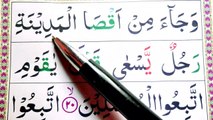 وَجَآءَ مِنْ اَقْصَا الْمَدِيْنَةِ
رَجُلٌ يَّسْعٰى يٰقَوْمِ
اتَّبِعُوا ﴿۲۰﴾ اتَّبِعُوْا